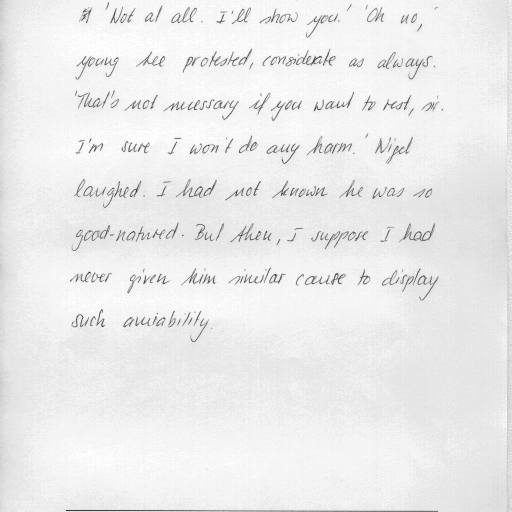 'Not at all. I'll show you.' 'Oh no,'
young Lee protested, considerate as always.
'That's not necessary if you want to rest, sir.
I'm sure I won't do any harm.' Nigel
laughed. I had not known he was so
good-natured. But then, I suppose I had
never given him similar cause to display
such amiability.